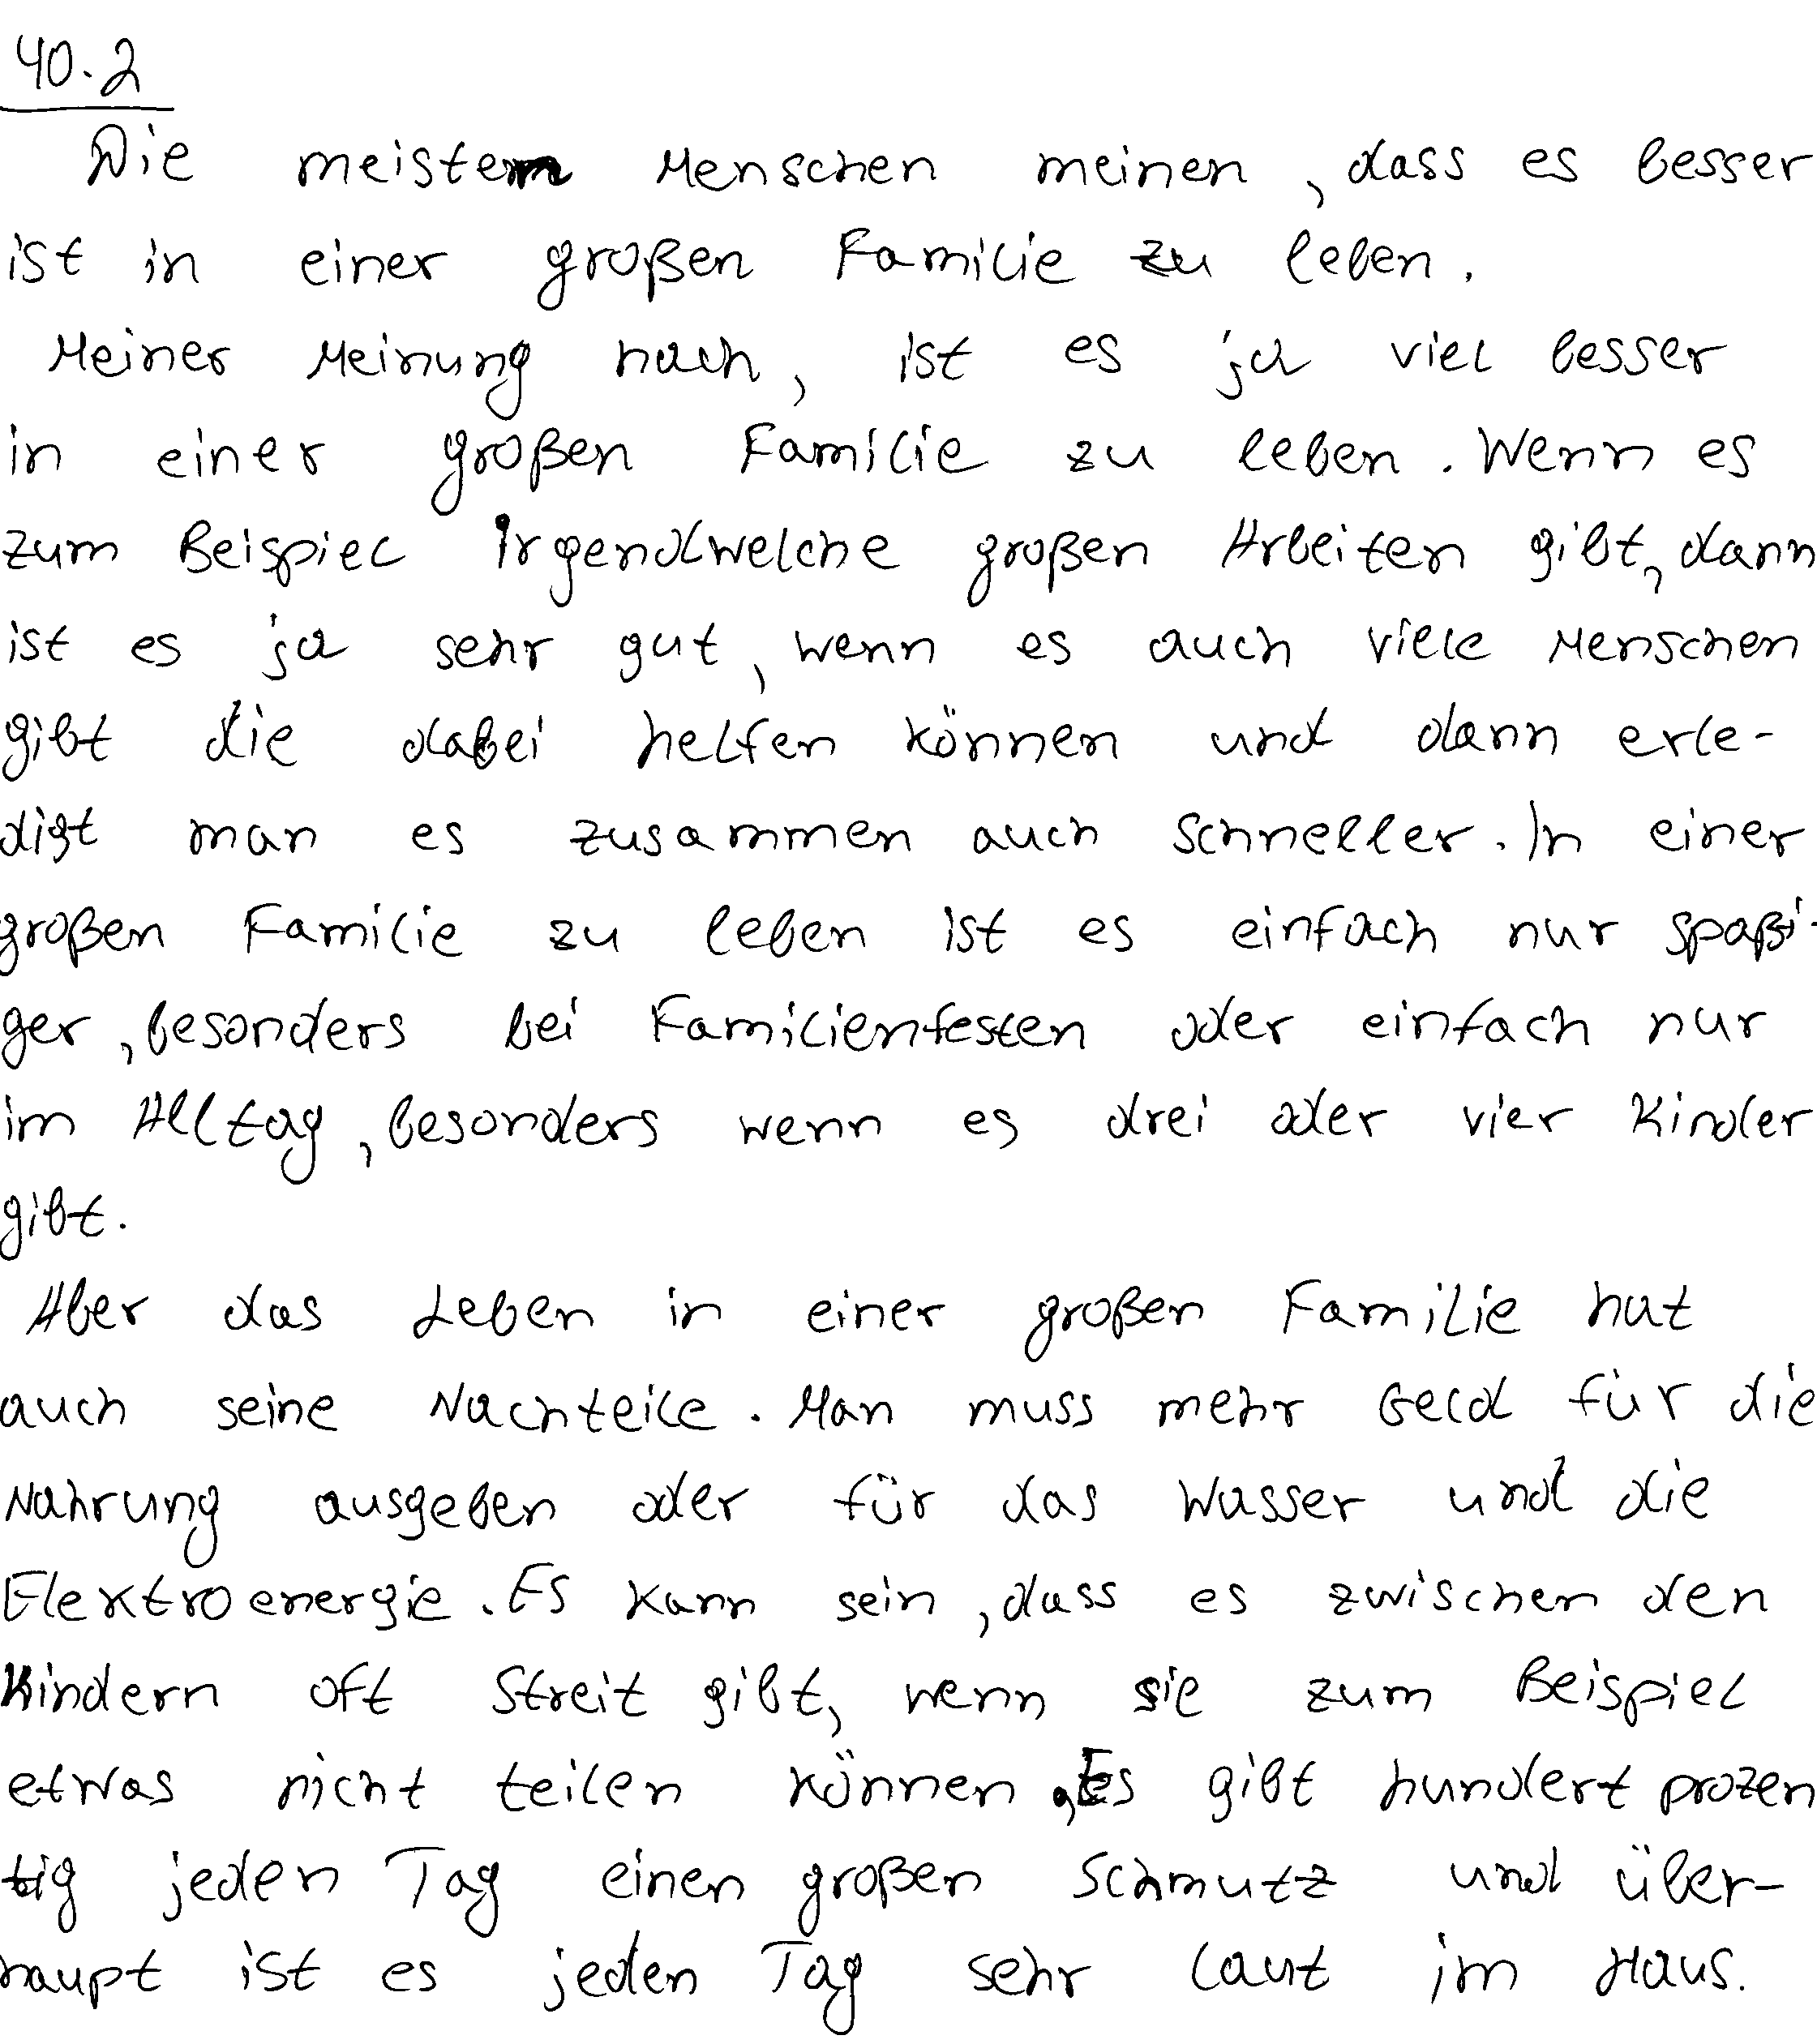 40.2
Die meisten Menschen meinen, dass es besser
ist in einer großen Familie zu leben.
Meiner Meinung nach, ist es ja viel besser
in einer großen Familie zu leben. Wenn es
zum Beispiel irgendwelche großen Arbeiten gibt, dann
ist es ja sehr gut, wenn es auch viele Menschen
gibt die dabei helfen können und dann erle-
digt man es zusammen auch schneller. In einer
großen Familie zu leben ist es einfach nur spaßi-
ger, besonders bei Familienfesten oder einfach nur
im Alltag, besonders wenn es drei oder vier Kinder
gibt.
Aber das Leben in einer großen Familie hat
auch seine Nachteile. Man muss mehr Geld für die
Nahrung ausgeben oder für das Wasser und die
Elektroenergie. Es kann sein, dass es zwischen den
Kindern oft Streit gibt, wenn sie zum Beispiel
etwas nicht teilen können. Es gibt hundert prozen
tig jeden Tag einen großen Schmutz und über-
haupt ist es jeden Tag sehr laut im Haus.